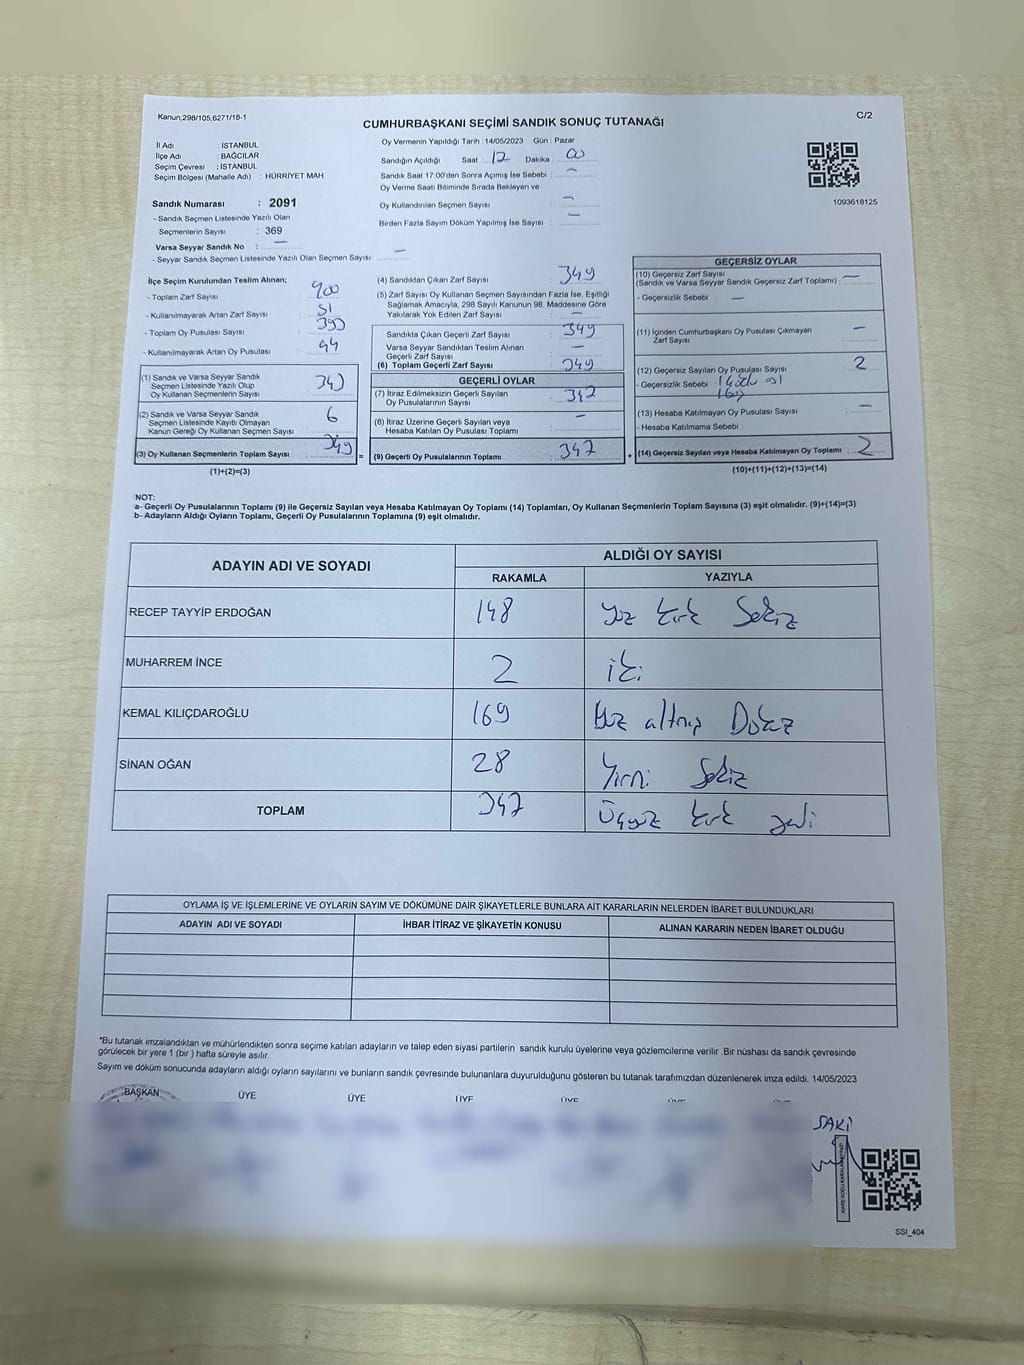 Kanun;298/105,6271/18-1
CUMHURBAŞKANI SEÇİMİ SANDIK SONUÇ TUTANAĞI
C/2
İl Adı : İSTANBUL
İlçe Adı : BAĞCILAR
Seçim Çevresi : İSTANBUL
Seçim Bölgesi (Mahalle Adı) : HÜRRİYET MAH
Sandık Numarası : 2091
- Sandık Seçmen Listesinde Yazılı Olan
Seçmenlerin Sayısı : 369
Varsa Seyyar Sandık No : —
- Seyyar Sandık Seçmen Listesinde Yazılı Olan Seçmen Sayısı: —
Oy Vermenin Yapıldığı Tarih : 14/05/2023 Gün : Pazar
Sandığın Açıldığı Saat : 17 Dakika : 00
Sandık Saat 17:00'den Sonra Açımış İse Sebebi : —
Oy Verme Saati Bitiminde Sırada Bekleyen ve
Oy Kullandırılan Seçmen Sayısı : —
Birden Fazla Sayım Döküm Yapılmış İse Sayısı : —
1093618125
İlçe Seçim Kurulundan Teslim Alınan;
- Toplam Zarf Sayısı : 400
- Kullanılmayarak Artan Zarf Sayısı : 51
- Toplam Oy Pusulası Sayısı :
- Kullanılmayarak Artan Oy Pusulası : 44
(1) Sandık ve Varsa Seyyar Sandık
Seçmen Listesinde Yazılı Olup
Oy Kullanan Seçmenlerin Sayısı : 343
(2) Sandık ve Varsa Seyyar Sandık
Seçmen Listesinde Kayıtlı Olmayan
Kanun Gereği Oy Kullanan Seçmen Sayısı : 6
(3) Oy Kullanan Seçmenlerin Toplam Sayısı : 349
=
(1)+(2)=(3)
(4) Sandıktan Çıkan Zarf Sayısı : 349
(5) Zarf Sayısı Oy Kullanan Seçmen Sayısından Fazla İse, Eşitliği
Sağlamak Amacıyla, 298 Sayılı Kanunun 98. Maddesine Göre
Yakılarak Yok Edilen Zarf Sayısı : —
Sandıkta Çıkan Geçerli Zarf Sayısı : 349
Varsa Seyyar Sandıktan Teslim Alınan
Geçerli Zarf Sayısı : —
(6) Toplam Geçerli Zarf Sayısı : 349
GEÇERLİ OYLAR
(7) İtiraz Edilmeksizin Geçerli Sayılan
Oy Pusulalarının Sayısı : 347
(8) İtiraz Üzerine Geçerli Sayılan veya
Hesaba Katılan Oy Pusulası Toplamı : —
(9) Geçerli Oy Pusulalarının Toplamı : 347
+
GEÇERSİZ OYLAR
(10) Geçersiz Zarf Sayısı
(Sandık ve Varsa Seyyar Sandık Geçersiz Zarf Toplamı) : —
- Geçersizlik Sebebi : —
(11) İçinden Cumhurbaşkanı Oy Pusulası Çıkmayan
Zarf Sayısı : —
(12) Geçersiz Sayılan Oy Pusulası Sayısı : 2
- Geçersizlik Sebebi :
(13) Hesaba Katılmayan Oy Pusulası Sayısı : —
- Hesaba Katılmama Sebebi :
(14) Geçersiz Sayılan veya Hesaba Katılmayan Oy Toplamı : 2
(10)+(11)+(12)+(13)=(14)
NOT:
a- Geçerli Oy Pusulalarının Toplamı (9) ile Geçersiz Sayılan veya Hesaba Katılmayan Oy Toplamı (14) Toplamları, Oy Kullanan Seçmenlerin Toplam Sayısına (3) eşit olmalıdır. (9)+(14)=(3)
b- Adayların Aldığı Oyların Toplamı, Geçerli Oy Pusulalarının Toplamına (9) eşit olmalıdır.
ADAYIN ADI VE SOYADI
ALDIĞI OY SAYISI
RAKAMLA
YAZIYLA
RECEP TAYYİP ERDOĞAN 148 Yüz kırk Sekiz
MUHARREM İNCE 2 iki
KEMAL KILIÇDAROĞLU 169 Yüz altmış Dokuz
SİNAN OĞAN 28 Yirmi Sekiz
TOPLAM 347 Üçyüz kırk yedi
OYLAMA İŞ VE İŞLEMLERİNE VE OYLARIN SAYIM VE DÖKÜMÜNE DAİR ŞİKAYETLERLE BUNLARA AİT KARARLARIN NELERDEN İBARET BULUNDUKLARI
ADAYIN ADI VE SOYADI
İHBAR İTİRAZ VE ŞİKAYETİN KONUSU
ALINAN KARARIN NEDEN İBARET OLDUĞU
*Bu tutanak imzalandıktan ve mühürlendikten sonra seçime katılan adayların ve talep eden siyasi partilerin sandık kurulu üyelerine veya gözlemcilerine verilir .Bir nüshası da sandık çevresinde
görülecek bir yere 1 (bir ) hafta süreyle asılır.
Sayım ve döküm sonucunda adayların aldığı oyların sayılarını ve bunların sandık çevresinde bulunanlara duyurulduğunu gösteren bu tutanak tarafımızdan düzenlenerek imza edildi. 14/05/2023
BAŞKAN ÜYE ÜYE ÜYE ÜYE
SAKİ
SSI_404